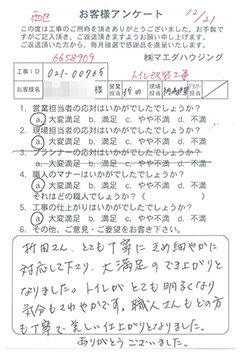 西区
12/21
お客様アンケート
この度は工事のご用命を頂きありがとうございました。お手数で
すがご記入頂き、ご返送頂きますようよろしくお願い申し上げます。
ご返送頂いた方から、毎月抽選で感謝品を進呈いたします。
6658909
㈱マエダハウジング
工事ID 021-00965 トイレ改装工事
お客様名 様 営業 折田 現場
1. 営業担当者の応対はいかがでしたでしょうか？
a. 大満足 b. 満足 c. やや不満 d. 不満
2. 現場担当者の応対はいかがでしたでしょうか？
a. 大満足 b. 満足 c. やや不満 d. 不満
3. プランナーの応対はいかがでしたでしょうか？
a. 大満足 b. 満足 c. やや不満 d. 不満
4. 職人のマナーはいかがでしたでしょうか？
a. 大満足 b. 満足 c. やや不満 d. 不満
それはどの職人でしょうか？（ ）
5. 工事の仕上がりはいかがでしたでしょうか？
a. 大満足 b. 満足 c. やや不満 d. 不満
6. その他、ご意見・ご要望をお書き下さい。
折田さん、とても丁寧にきめ細やかに
対応して下さり、大満足のでき上がりと
なりました。トイレがとても明るくなり
気分もさわやかです。職人さんもどの方
も丁寧で、美しい仕上がりとなりました。
ありがとうございました。